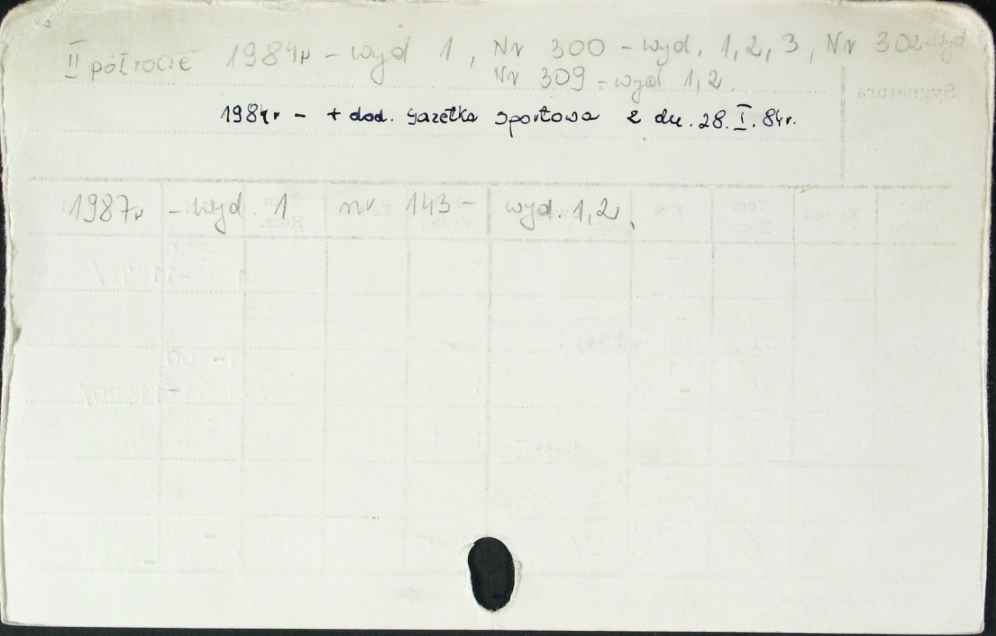 II półrocze 1984r – wyd 1, Nr 300 – wyd. 1, 2, 3, Nr 302 wyd
Nr 309 – wyd 1, 2.
1984r – + dod. Gazetka Sportowa z dn. 28. I. 84r.
1987r – wyd. 1 nr 143 – wyd. 1, 2.